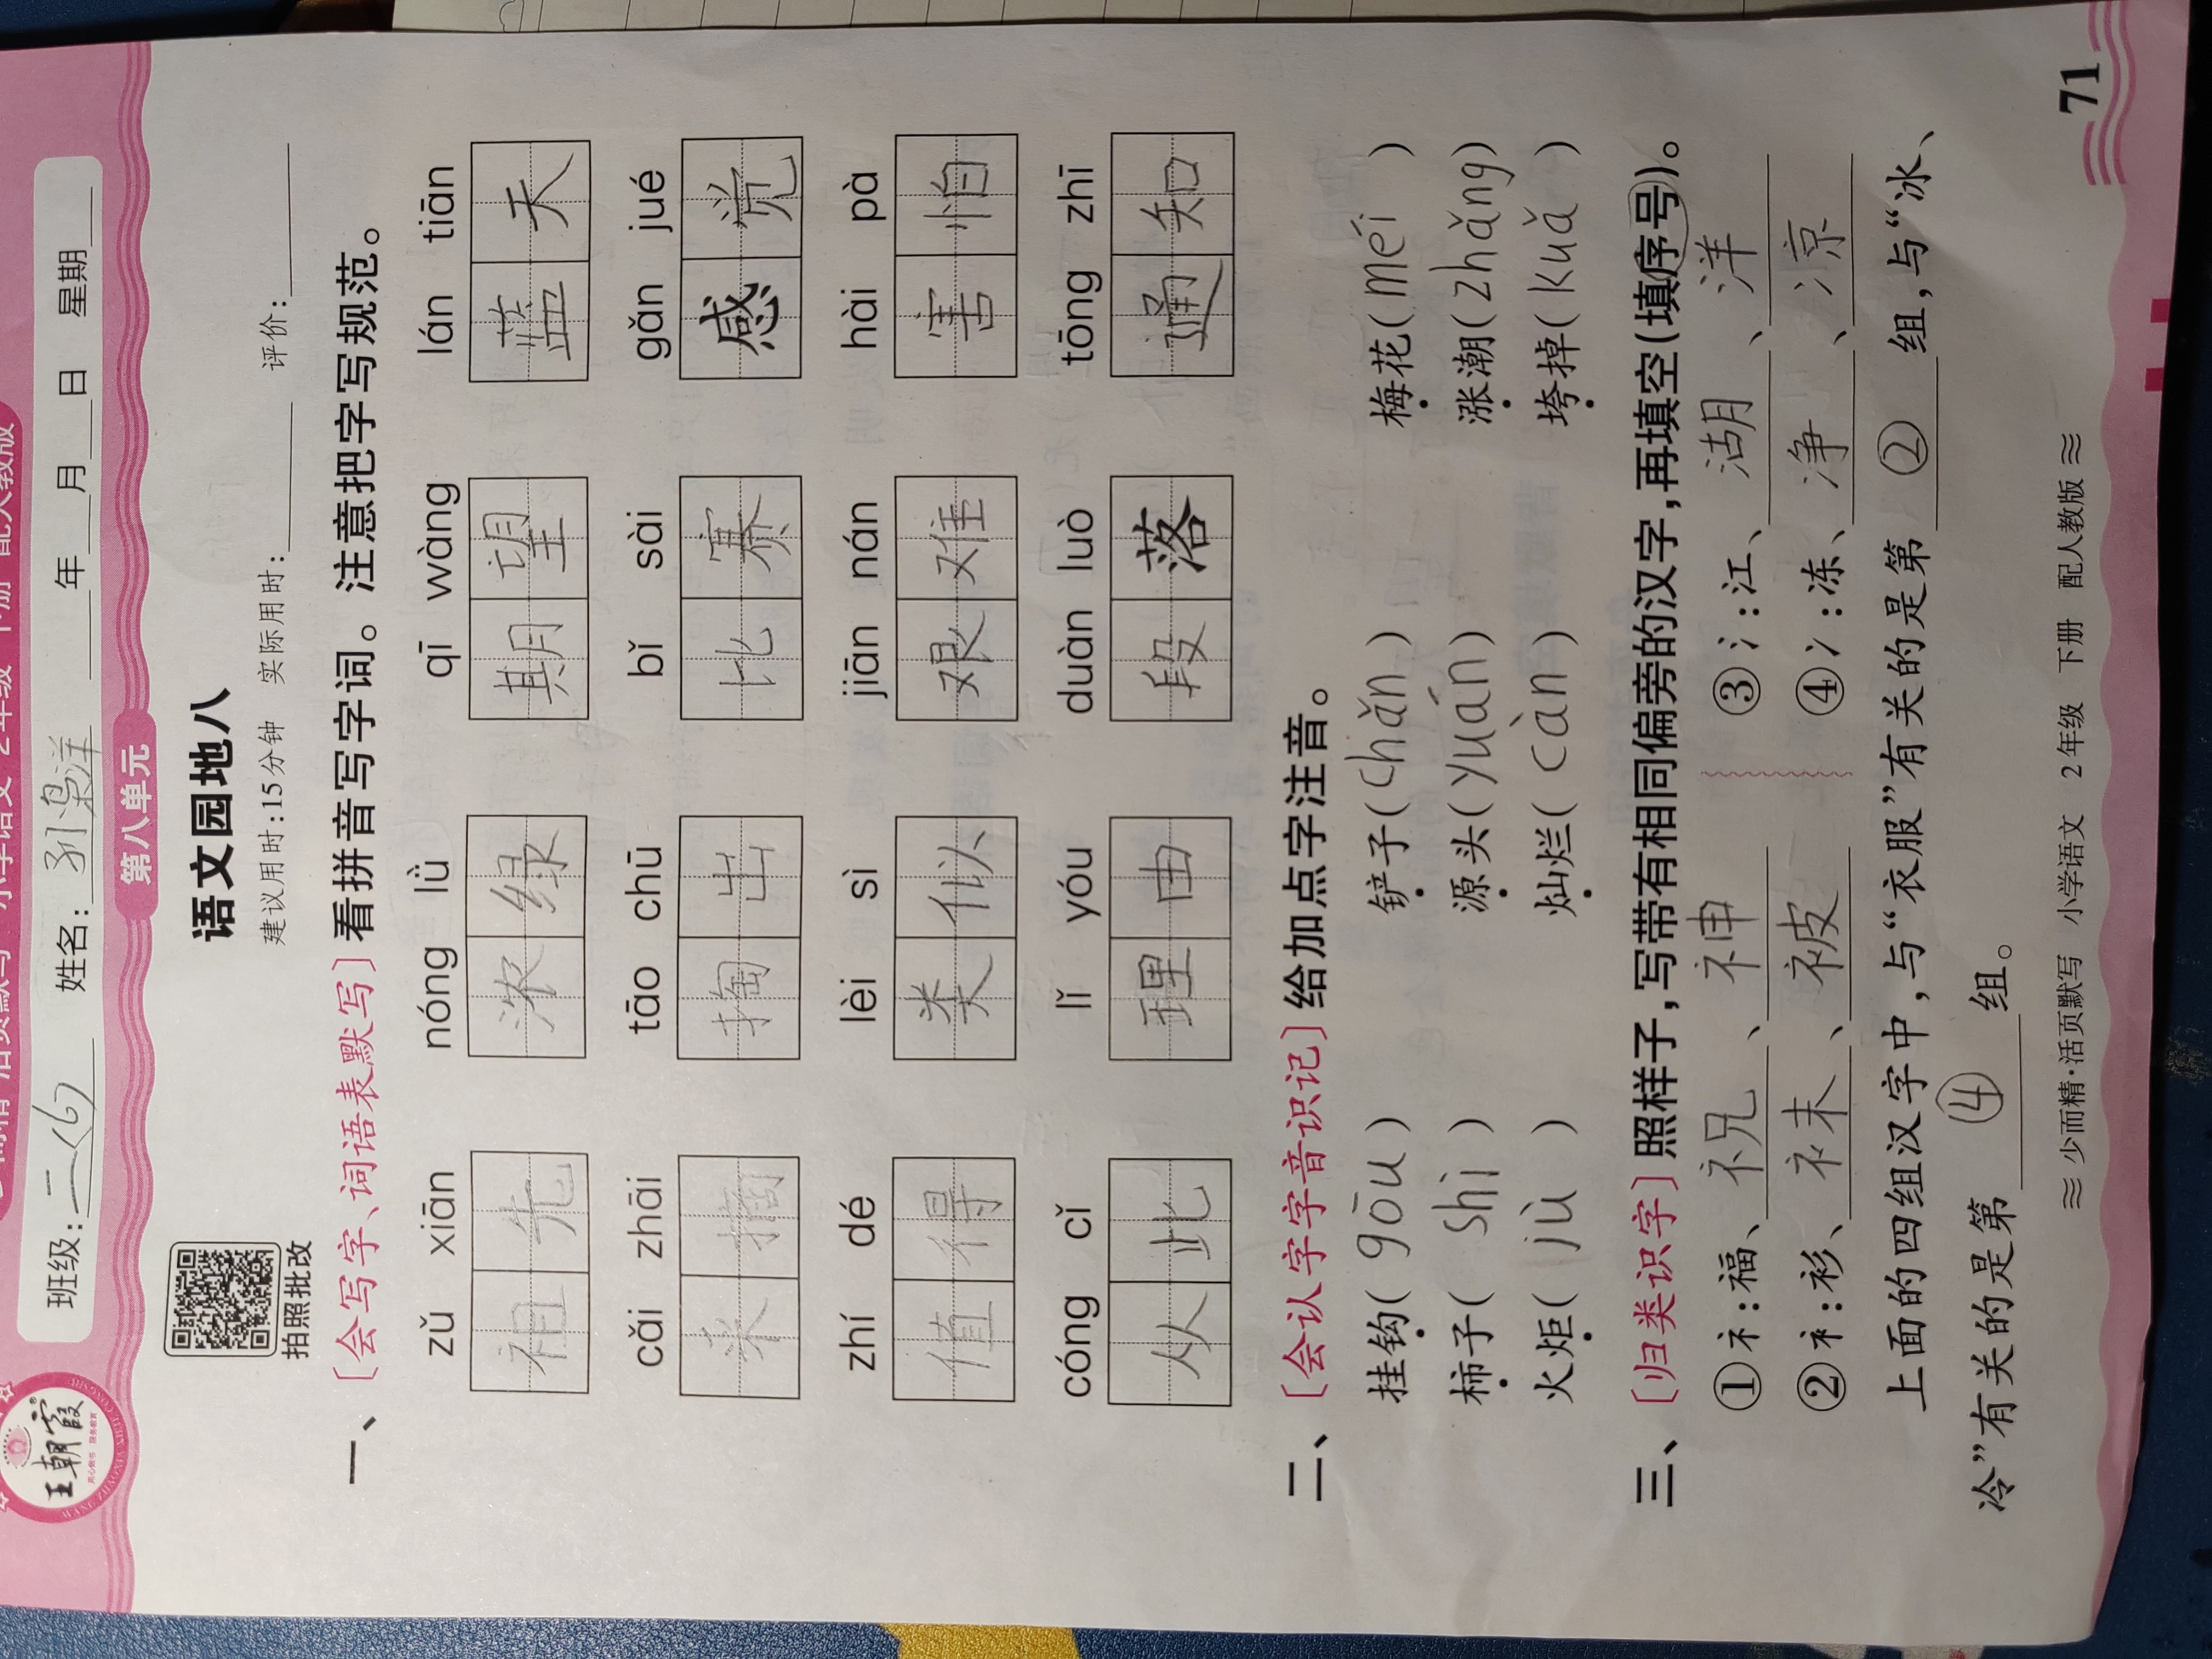 王朝霞
班级:二(6) 姓名: 年 月 日 星期
第八单元
拍照批改
语文园地八
建议用时:15分钟 实际用时: 评价:
一、〔会写字、词语表默写〕看拼音写字词。注意把字写规范。
zǔ xiān nóng lǜ qī wàng lán tiān
祖先 浓绿 期望 蓝天
cǎi zhāi tāo chū bǐ sài gǎn jué
采摘 掏出 比赛 感觉
zhí dé lèi sì jiān nán hài pà
值得 类似 艰难 害怕
cóng cǐ lǐ yóu duàn luò tōng zhī
从此 理由 段落 通知
二、〔会认字字音识记〕给加点字注音。
挂钩(gōu) 铲子(chǎn) 梅花(méi)
柿子(shì) 源头(yuán) 涨潮(zhǎng)
火炬(jù) 灿烂(càn) 垮掉(kuǎ)
三、〔归类识字〕照样子,写带有相同偏旁的汉字,再填空(填序号)。
①礻:福、祝、神 ③氵:江、湖、洋
②衤:衫、袜、被 ④冫:冻、净、凉
上面的四组汉字中,与“衣服”有关的是第②组,与“冰、
冷”有关的是第④组。
≋ 少而精·活页默写 小学语文 2年级 下册 配人教版 ≋
71